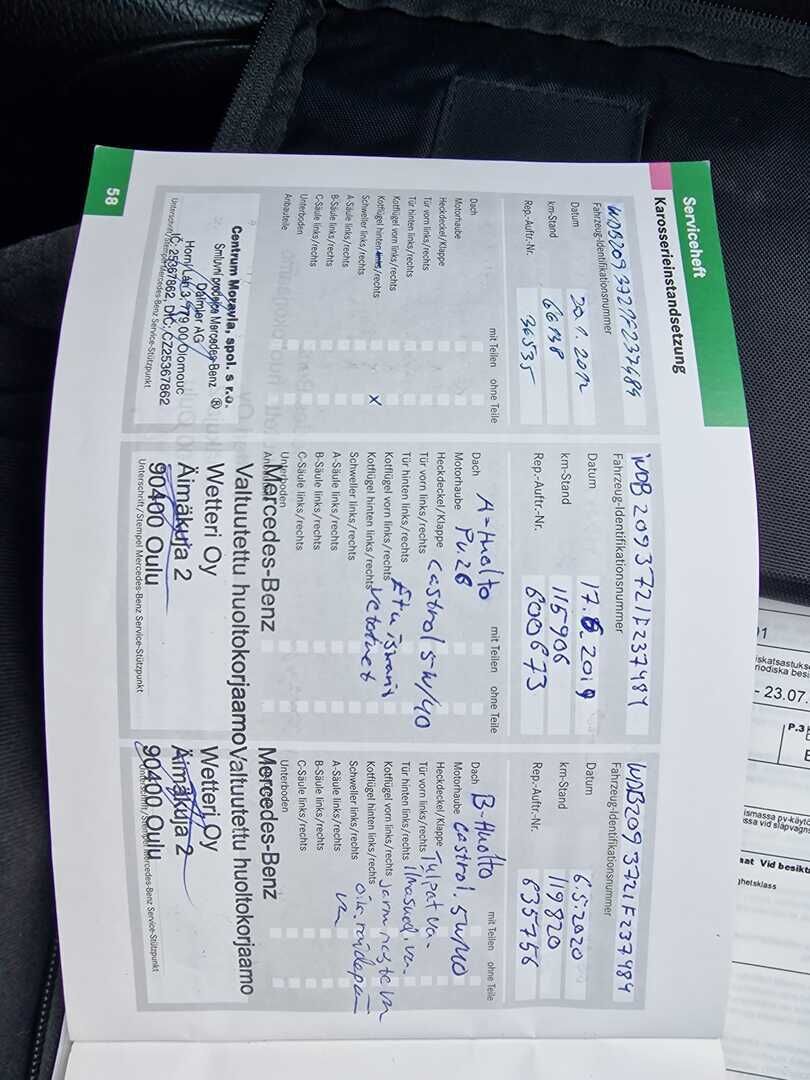 Serviceheft
Karosserieinstandsetzung
WDB2093721F237484
Fahrzeug-Identifikationsnummer
Datum 20.1.2012
km-Stand 66138
Rep.-Auftr.-Nr. 36535
mit Teilen ohne Teile
Dach
Motorhaube
Heckdeckel/Klappe
Tür vorn links/rechts
Tür hinten links/rechts
Kotflügel vorn links/rechts
Kotflügel hinten links/rechts x
Schweller links/rechts
A-Säule links/rechts
B-Säule links/rechts
C-Säule links/rechts
Unterboden
Anbauteile
Centrum Moravia, spol. s r.o.
Smluvní prodejce Mercedes-Benz ®
Daimler AG
779 00 Olomouc
IČ: 25367862, DIČ: CZ25367862
Unterschrift/Stempel Mercedes-Benz Service-Stützpunkt
WDB2093721F237484
Fahrzeug-Identifikationsnummer
Datum 17.6.2019
km-Stand 115906
Rep.-Auftr.-Nr. 600673
mit Teilen ohne Teile
Dach A-Huolto
Motorhaube
Heckdeckel/Klappe Castrol 5W/40
Tür vorn links/rechts
Tür hinten links/rechts
Kotflügel vorn links/rechts
Kotflügel hinten links/rechts
Schweller links/rechts
A-Säule links/rechts
B-Säule links/rechts
C-Säule links/rechts
Unterboden
Mercedes-Benz
Valtuutettu huoltokorjaamo
Wetteri Oy
Äimäkuja 2
90400 Oulu
Unterschrift/Stempel Mercedes-Benz Service-Stützpunkt
WDB2093721F237484
Fahrzeug-Identifikationsnummer
Datum 6.5.2020
km-Stand 119820
Rep.-Auftr.-Nr. 635756
mit Teilen ohne Teile
Dach B-Huolto
Motorhaube Castrol. 5W/40
Heckdeckel/Klappe
Tür vorn links/rechts Tulpat va-
Tür hinten links/rechts Ilmasuod. va-
Kotflügel vorn links/rechts Jarruneste va
Kotflügel hinten links/rechts
Schweller links/rechts
A-Säule links/rechts
B-Säule links/rechts
C-Säule links/rechts
Unterboden
Mercedes-Benz
Valtuutettu huoltokorjaamo
Wetteri Oy
Äimäkuja 2
90400 Oulu
Mercedes-Benz Service-Stützpunkt
58
- 23.07.
P.3